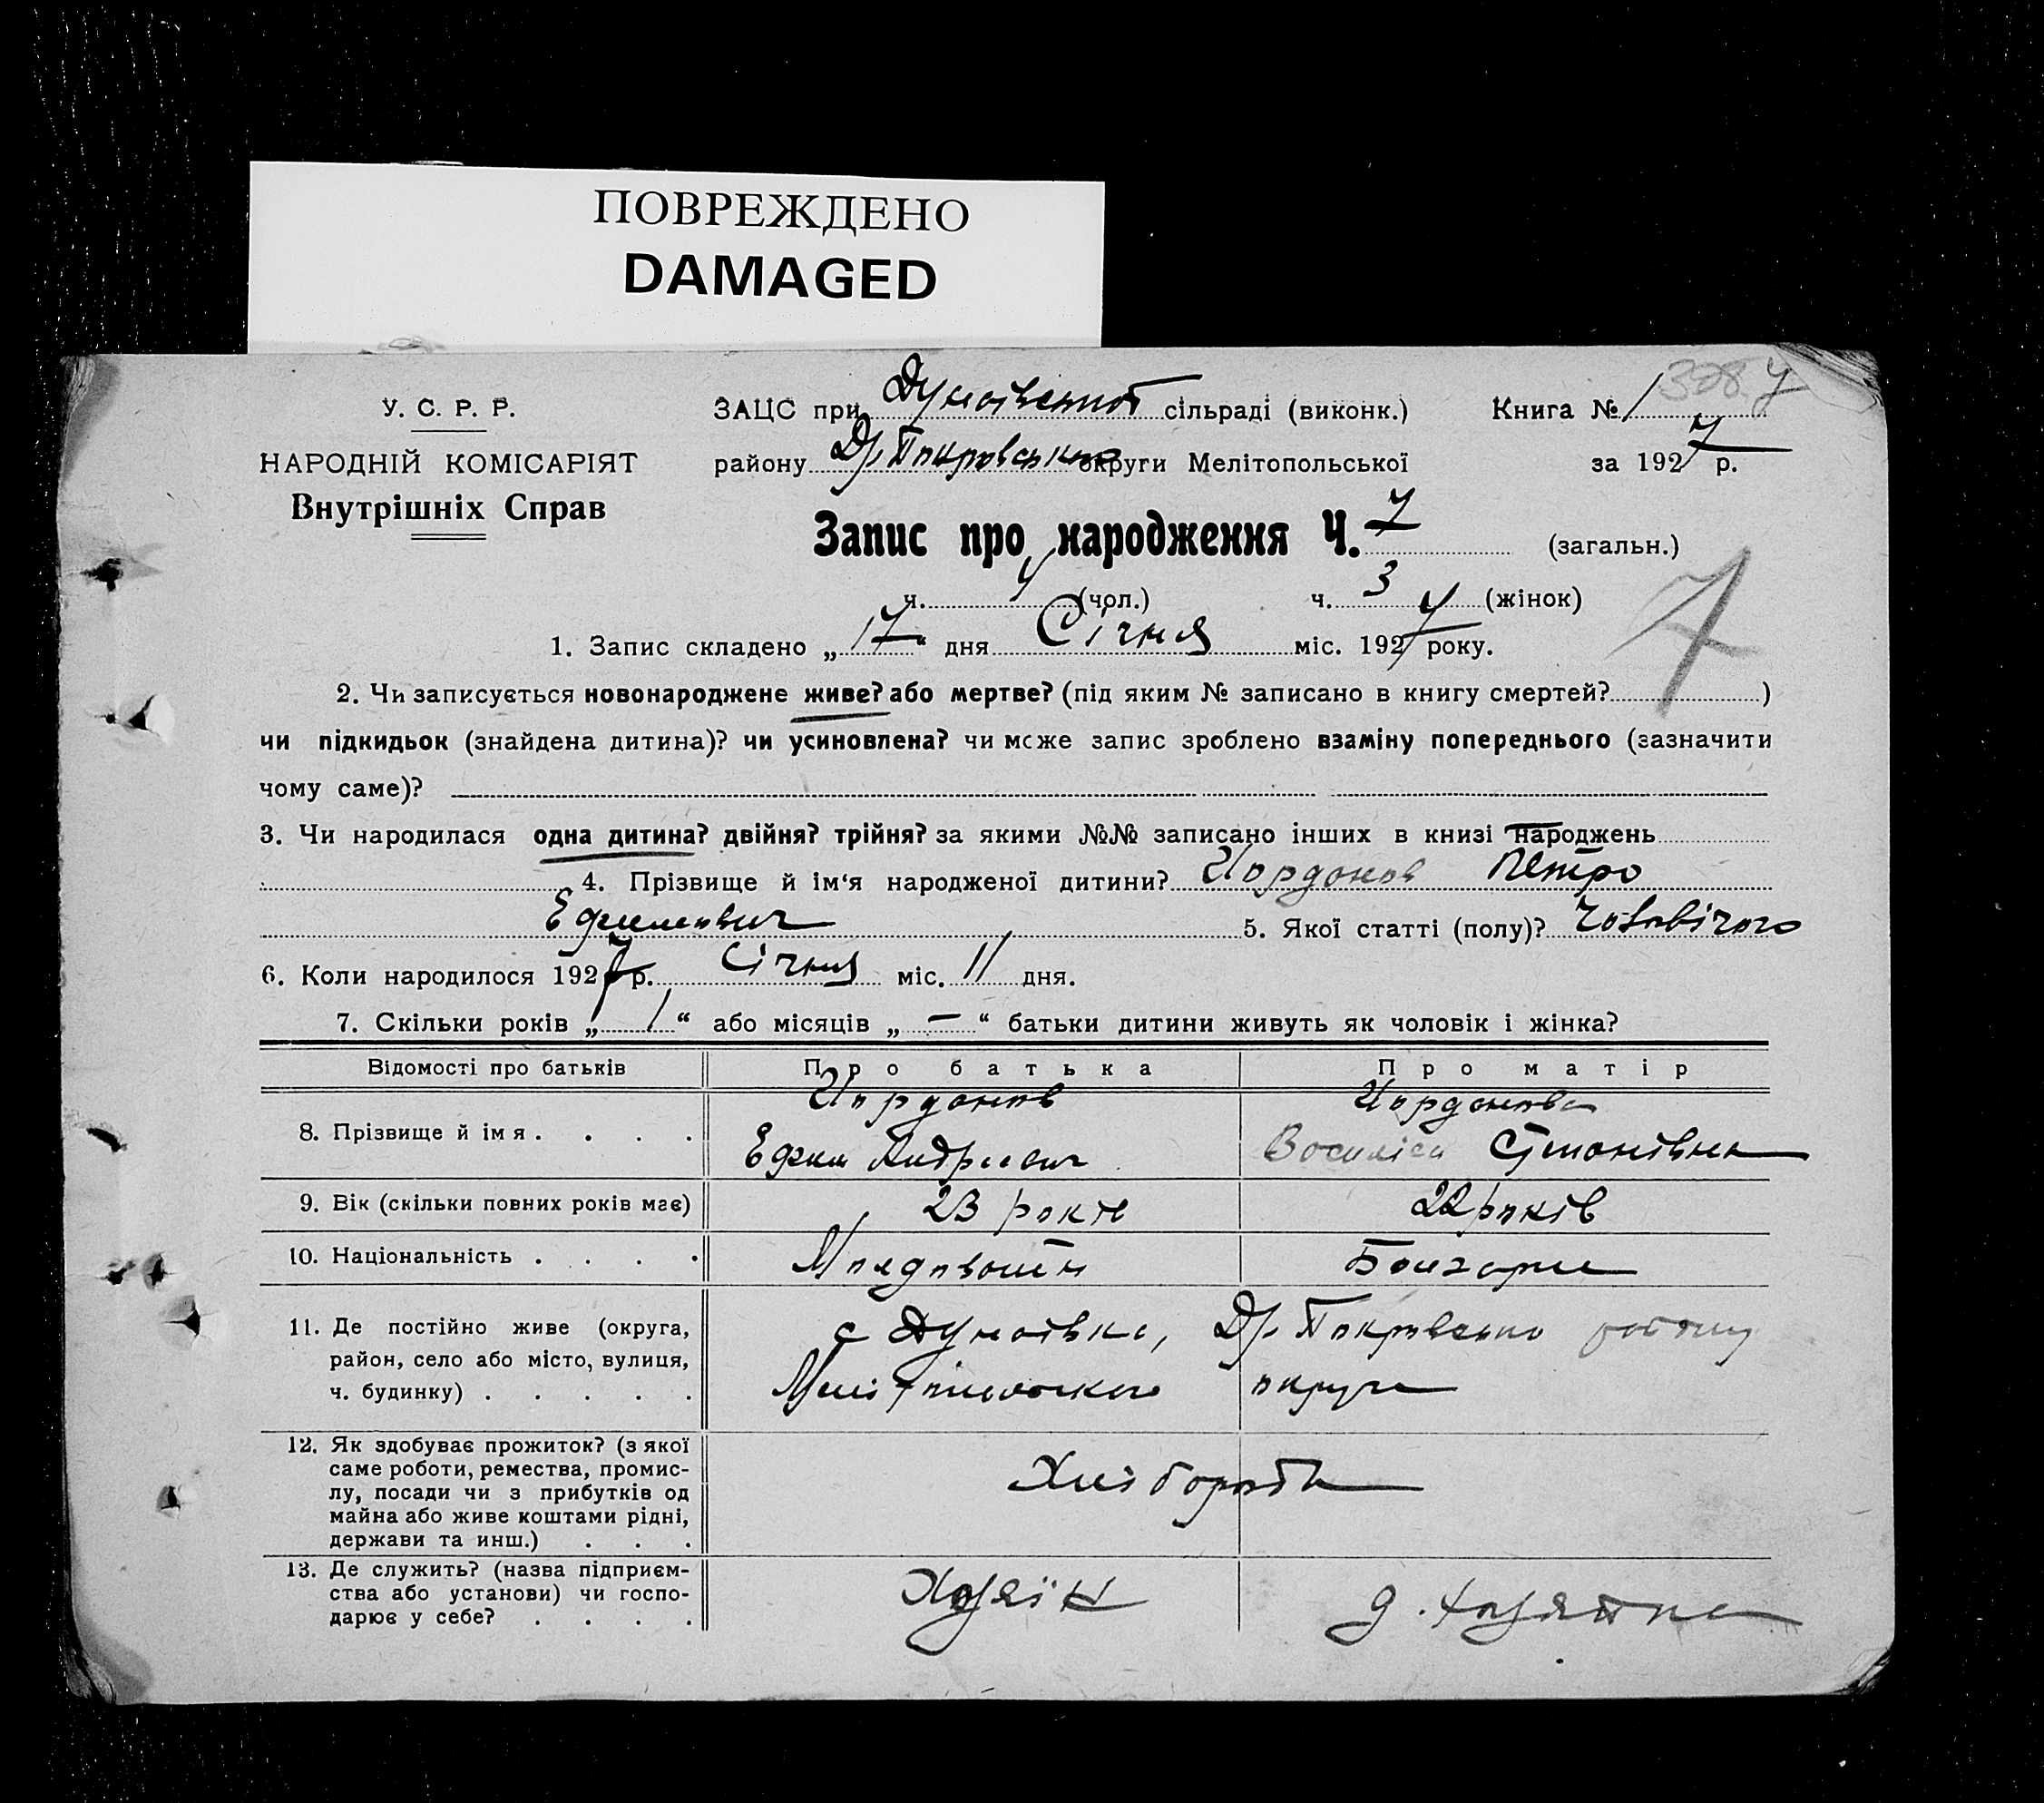 ПОВРЕЖДЕНО
DAMAGED
У. С. Р. Р.
НАРОДНІЙ КОМІСАРІЯТ
Внутрішніх Справ
ЗАЦС при Дунаївської сільраді (виконк.)
Книга № 1
району Др. Покровського округи Мелітопольської
за 1927 р.
Запис про народження Ч. 7 (загальн.)
ч. 4 (чол.) ч. 3 (жінок)
7
1. Запис складено „17“ дня Січня міс. 1927 року.
2. Чи записується новонароджене живе? або мертве? (під яким № записано в книгу смертей? )
чи підкидьок (знайдена дитина)? чи усиновлена? чи може запис зроблено взаміну попереднього (зазначити
чому саме)?
3. Чи народилася одна дитина? двійня? трійня? за якими №№ записано інших в книзі народжень
4. Прізвище й ім‘я народженої дитини? Иорданов Петро
Ефимович 5. Якої статті (полу)? Чоловічого
6. Коли народилося 1927 р. Січня міс. 11 дня.
7. Скільки років „1“ або місяців „—“ батьки дитини живуть як чоловік і жінка?
Відомості про батьків Про батька Про матір
8. Прізвище й імя . . . . Иорданов Иорданова
Ефим Андреевич Василіса Степанівна
9. Вік (скільки повних років має) 23 років 22 років
10. Національність . . . . Молдованін Болгарка
11. Де постійно живе (округа,
район, село або місто, вулиця,
ч. будинку) . . . . .
с Дунаївка, Др. Покровського району
Мелітопольского округа
12. Як здобуває прожиток? (з якої
саме роботи, ремества, промис-
лу, посади чи з прибутків од
майна або живе коштами рідні,
держави та инш.) . . .
Хліборобе
13. Де служить? (назва підприєм-
ства або установи) чи госпо-
дарює у себе? . . . .
Хазяїн
д. хазяйка